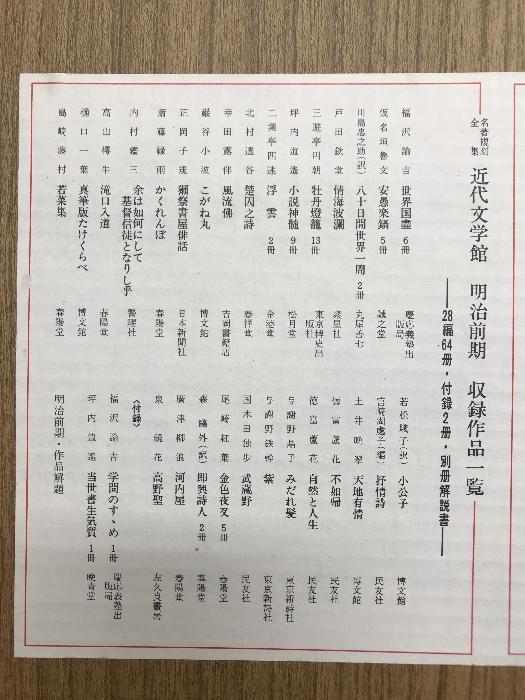 名著複刻
全集
近代文学館　明治前期　収録作品一覧
―28編64冊・付録2冊・別冊解説書―
福沢諭吉　世界国盡　6冊　慶応義塾出版局
仮名垣魯文　安愚楽鍋　5冊　誠之堂
川島忠之助(訳)　八十日間世界一周　2冊　丸屋善七
戸田欽堂　情海波瀾　聚星社
三遊亭円朝　牡丹燈籠　13冊　東京稗史出版社
坪内逍遙　小説神髄　9冊　松月堂
二葉亭四迷　浮雲　2冊　金港堂
北村透谷　楚囚之詩　春祥堂
幸田露伴　風流佛　吉岡書籍店
巌谷小波　こがね丸　博文館
正岡子規　獺祭書屋俳話　日本新聞社
斎藤緑雨　かくれんぼ　春陽堂
内村鑑三　余は如何にして
基督信徒となりし乎　警醒社
高山樗牛　滝口入道　春陽堂
樋口一葉　真筆版たけくらべ　博文館
島崎藤村　若菜集　春陽堂
若松賤子(訳)　小公子　博文館
宮崎湖處子(編)　抒情詩　民友社
土井晩翠　天地有情　博文館
徳冨蘆花　不如帰　民友社
徳冨蘆花　自然と人生　民友社
与謝野晶子　みだれ髪　東京新詩社
与謝野鉄幹　紫　東京新詩社
国木田独歩　武蔵野　民友社
尾崎紅葉　金色夜叉　5冊　春陽堂
森鷗外(訳)　即興詩人　2冊　春陽堂
廣津柳浪　河内屋　春陽堂
泉鏡花　高野聖　左久良書房
〈付録〉
福沢諭吉　学問のすゝめ　1冊　慶応義塾出版局
坪内逍遙　当世書生気質　1冊　晩青堂
明治前期・作品解題